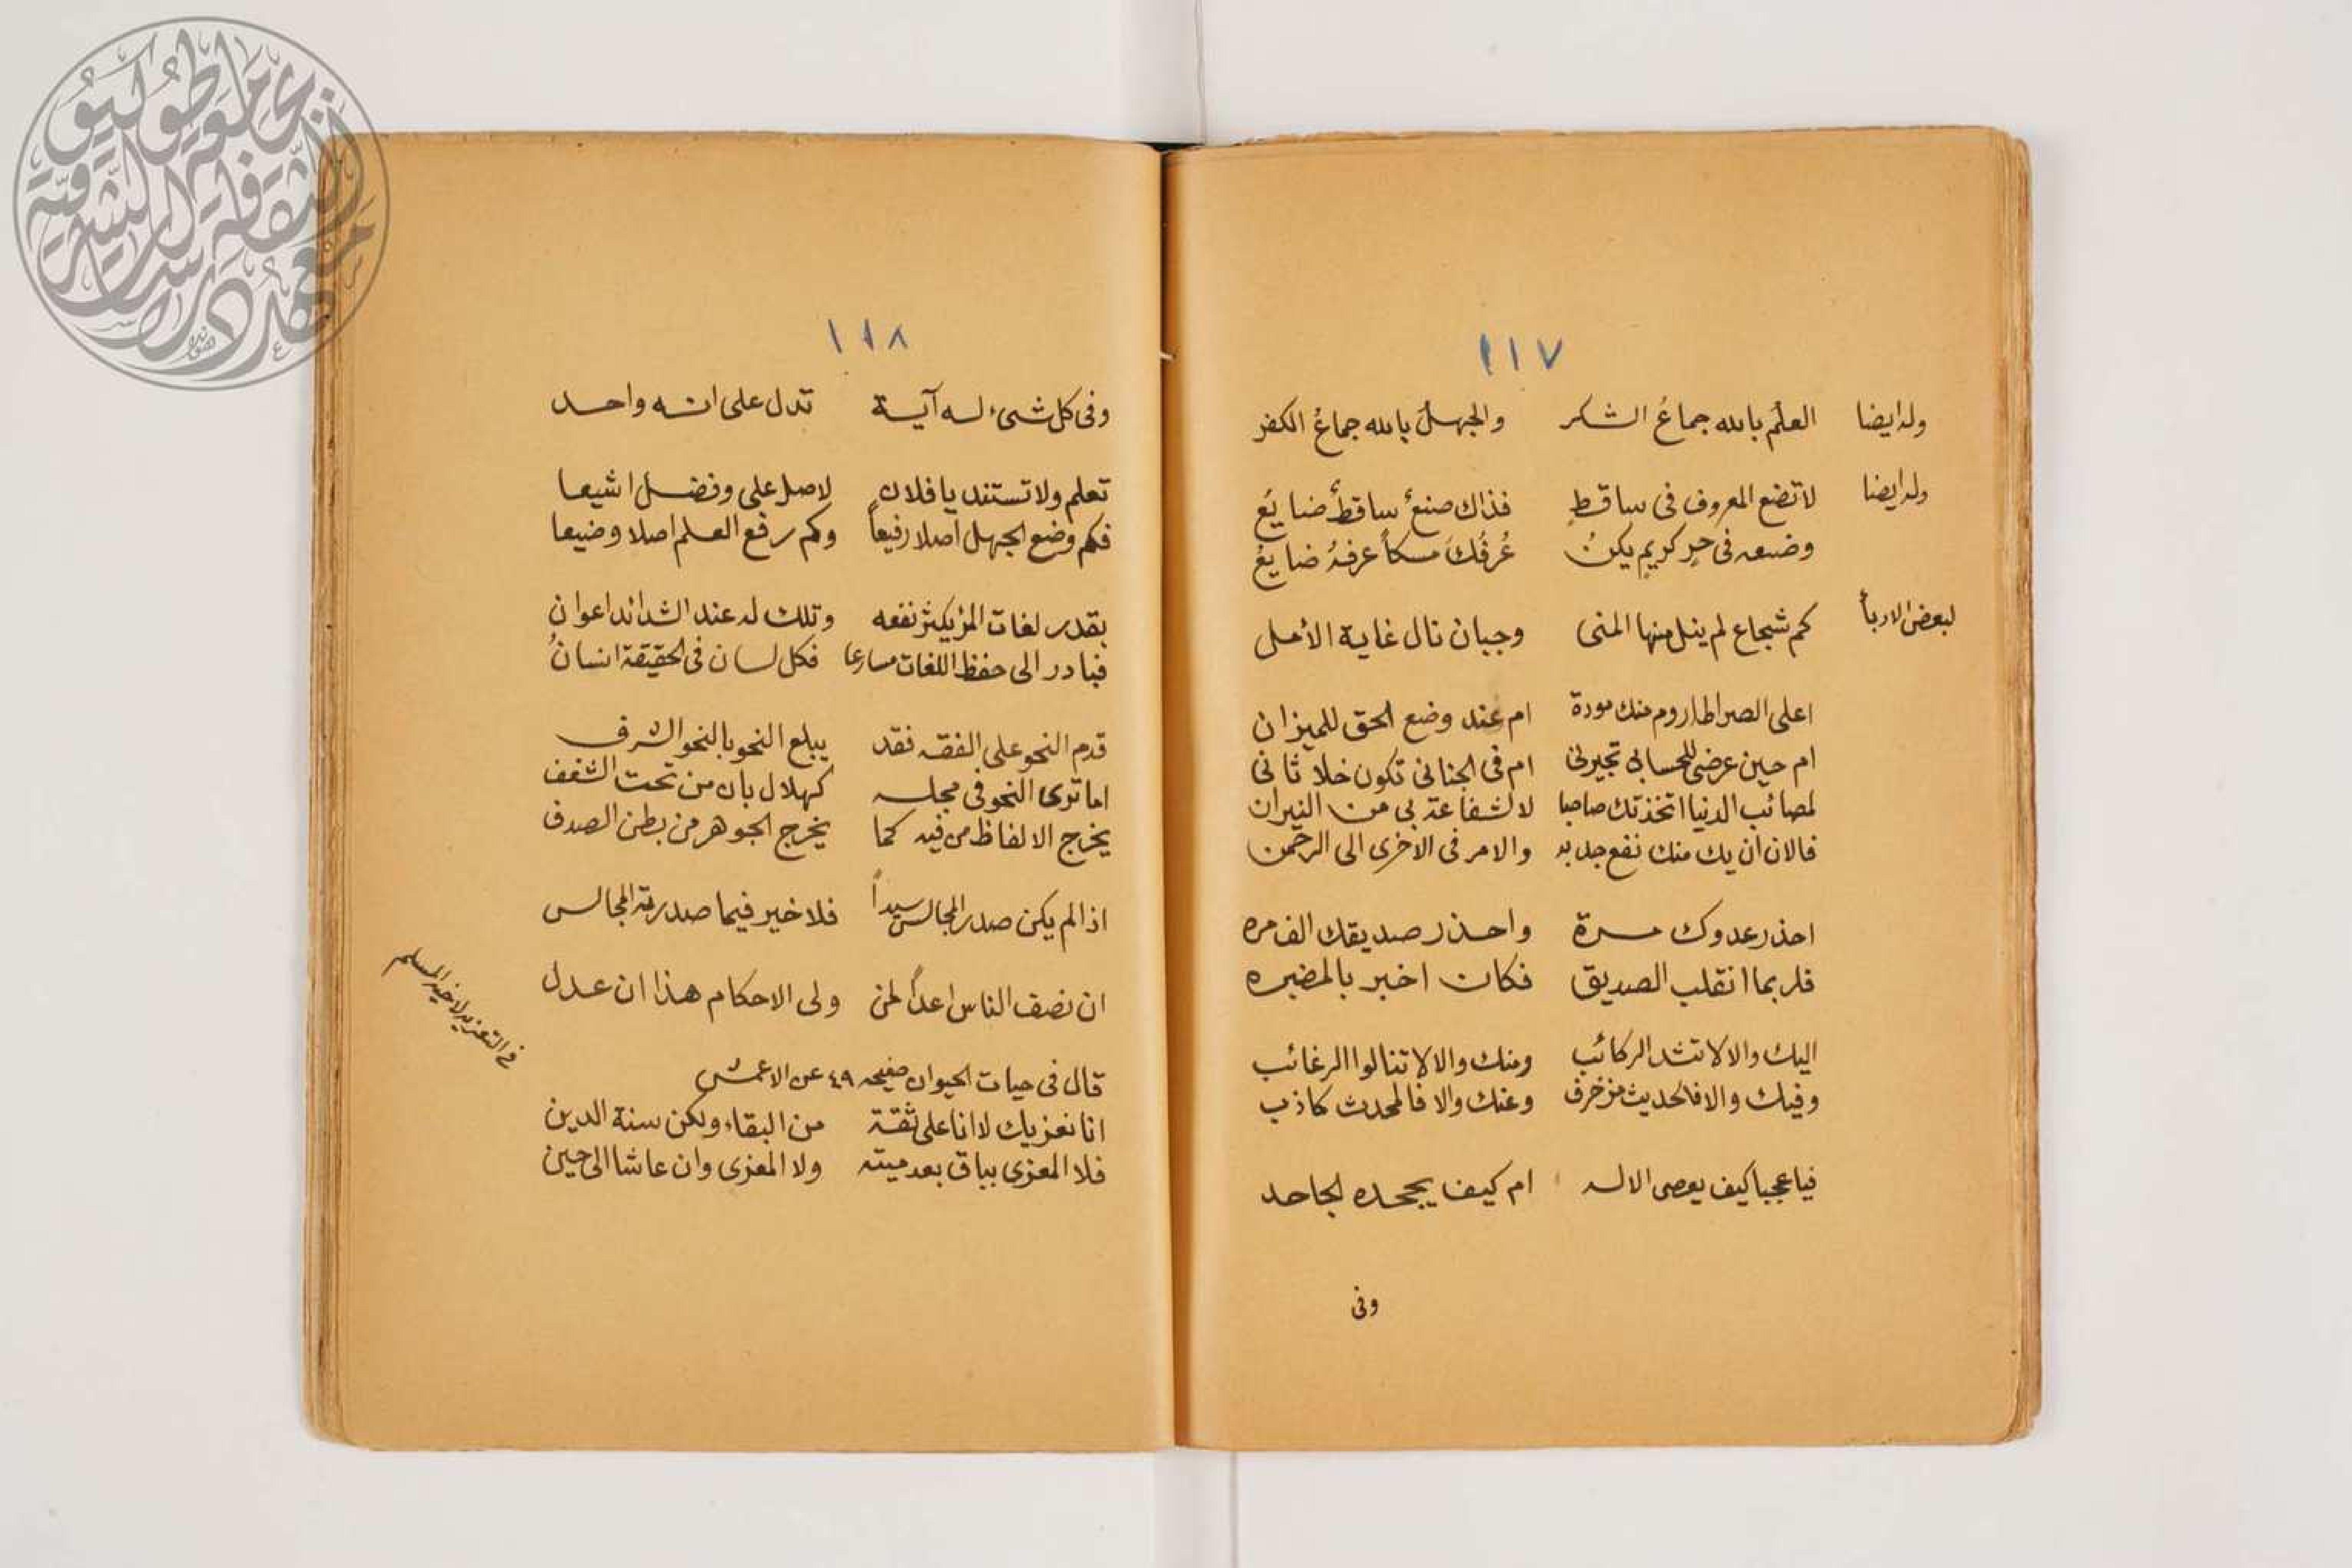 ١١٧
وله ايضا العلم بالله جماعُ الشكر والجهلُ بالله جماعُ الكفر
وله ايضا لا تضع المعروف فى ساقطٍ فذاك صنعٌ ساقطٌ ضايعُ
وضعه فى حرٍ كريمٍ يكنُ عُرفُكَ مسكاً عرفهُ ضايعُ
لبعض الادبأ كم شجاع لم ينل منها المنى وجبان نال غاية الأمل
اعلى الصراط اروم منك مودة ام عند وضع الحق للميزان
ام حين عرضى للحساب تجيرنى ام فى الجنانى تكون خلا ثانى
لمصائب الدنيا اتخذتك صاحبا لا لشفاعة بى من النيران
فالان ان يك منك نفع جد به والامر فى الاخرى الى الرحمن
احذر عدوك مرة واحذر صديقك الف مره
فلربما انقلب الصديق فكان اخبر بالمضره
اليك والا لا تشد الركائب ومنك والا لا تنالوا الرغائب
وفيك والا فالحديث مزخرف وعنك والا فالمحدث كاذب
فيا عجبا كيف يعصى الاله ام كيف يجحده لجاحد
وفى
١١٨
وفى كل شىء له آية تدل على انه واحد
تعلم ولا تستند يا فلان لاصل على وفضل اشيعا
فكم وضع الجهل اصلا رفيعاً وكم رفع العلم اصلا وضيعا
بقدر لغات المرٔ يكثر نفعه وتلك له عند الشدائد اعوان
فبادر الى حفظ اللغات مسارعا فكل لسان فى الحقيقة انسانُ
قدم النحو على الفقه فقد يبلع النحو بالنحو الشرف
اما ترى النحو فى مجلسه كهلال بان من تحت الشغف
يخرج الالفاظ من فيه كما يخرج الجوهر من بطن الصدف
اذا لم يكن صدر المجالس سيداً فلا خير فيما صدرته المجالس
ان نصف الناس اعدأ لمن ولى الاحكام هذا ان عدل
فى التعزيه لاخيه المسلم
قال فى حيات الحيوان صفيحه ٤٩ عن الاعمش
انا نعزيك لا انا على ثقة من البقاء ولكن سنة الدين
فلا المعزى بباق بعد ميته ولا المعزى وان عاشا الى حين